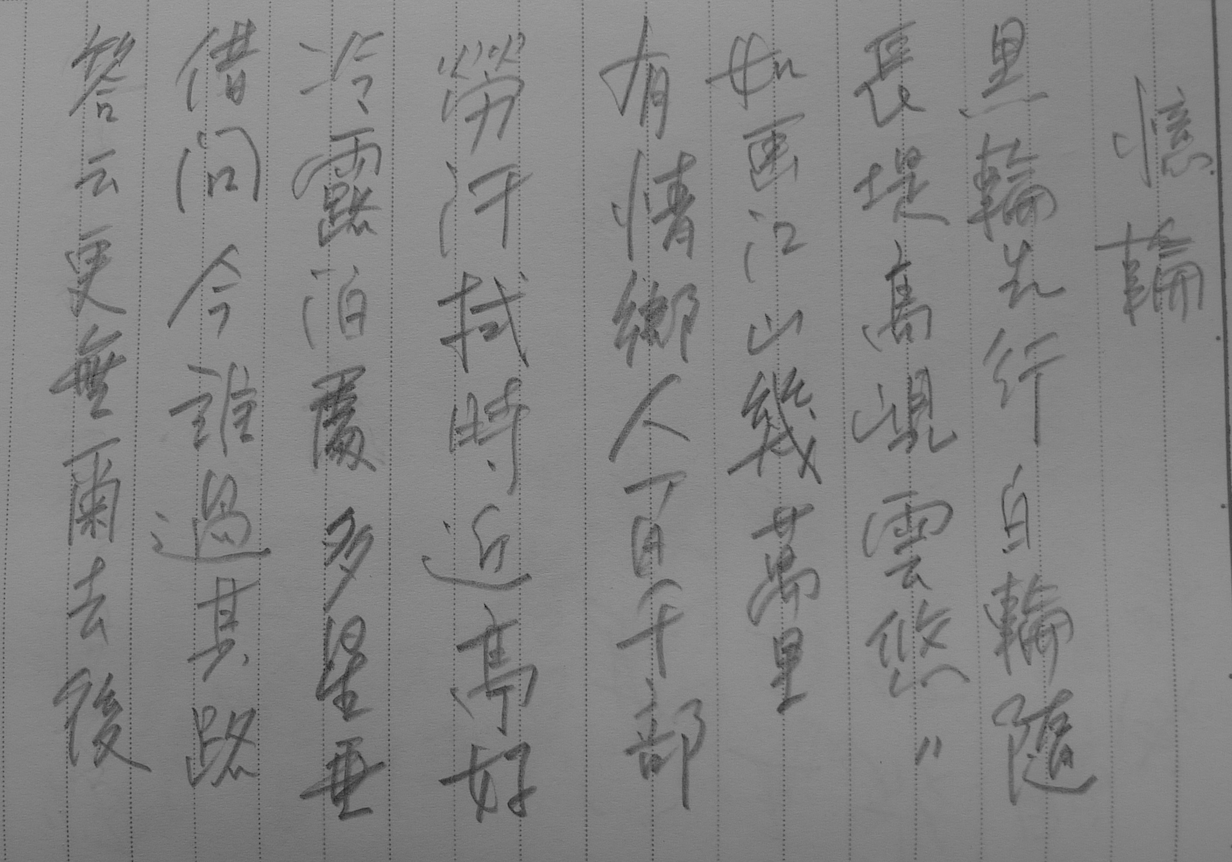 憶輪
黑輪先行白輪隨
長堤高峴雲悠〃
如画江山幾萬里
有情鄉人百千部
勞汗拭時近亭好
冷露泊處多星垂
借問今誰過其路
答云更無爾去後